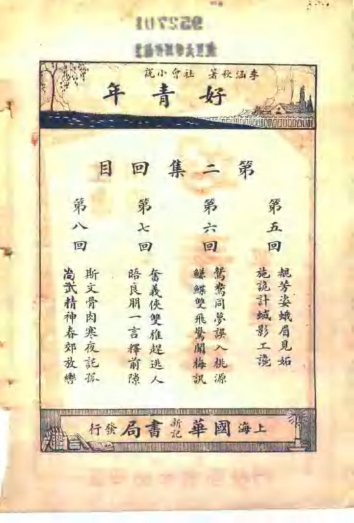 李涵秋著 社會小說
好青年
第二集回目
第五回
覩芳姿蛾眉見妬
施詭計蜮影工讒
第六回
鴛鴦同夢誤入桃源
鰈雙飛驚聞梅訊
第七回
奮義俠雙椎趕逃人
晤良朋一言釋前隙
第八回
斯文骨肉寒夜託孤
尚武精神春郊放彎
上海國華新記書局發行